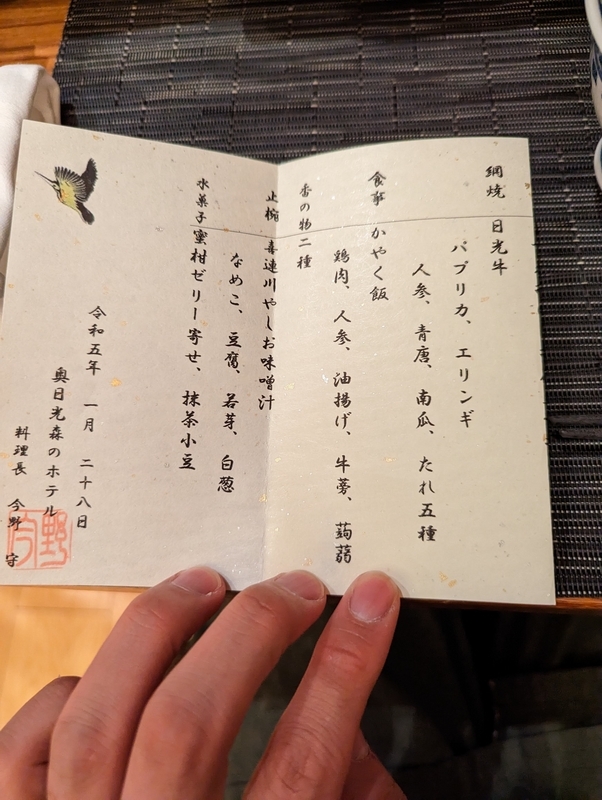 網焼 日光牛
パプリカ、エリンギ
人参、青唐、南瓜、たれ五種
食事 かやく飯
鶏肉、人参、油揚げ、牛蒡、蒟蒻
香の物二種
止椀 喜連川やしお味噌汁
なめこ、豆腐、若芽、白葱
水菓子 蜜柑ゼリー寄せ、抹茶小豆
令和五年 一月 二十八日
奥日光森のホテル
料理長 今野 守
今野